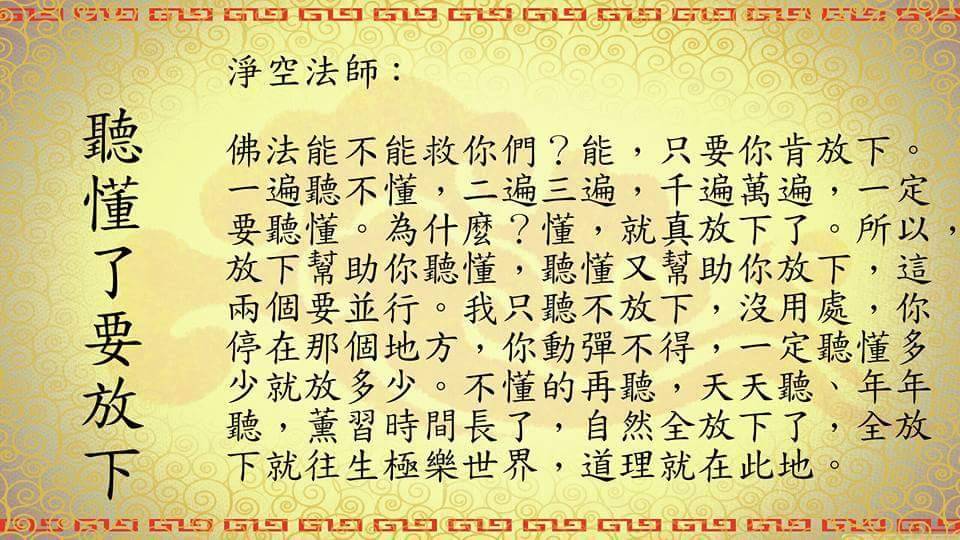 聽懂了要放下
淨空法師：
佛法能不能救你們？能，只要你肯放下。
一遍聽不懂，二遍三遍，千遍萬遍，一定
要聽懂。為什麼？懂，就真放下了。所以，
放下幫助你聽懂，聽懂又幫助你放下，這
兩個要並行。我只聽不放下，沒用處，你
停在那個地方，你動彈不得，一定聽懂多
少就放多少。不懂的再聽，天天聽、年年
聽，薰習時間長了，自然全放下了，全放
下就往生極樂世界，道理就在此地。